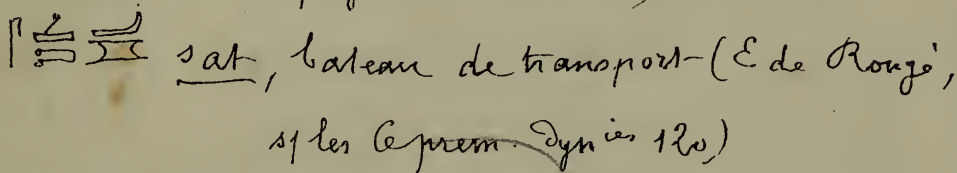 sat, bateau de transport – (E de Rougé,
s/ les 6 prem. Dyn<sup>ies</sup> 120)